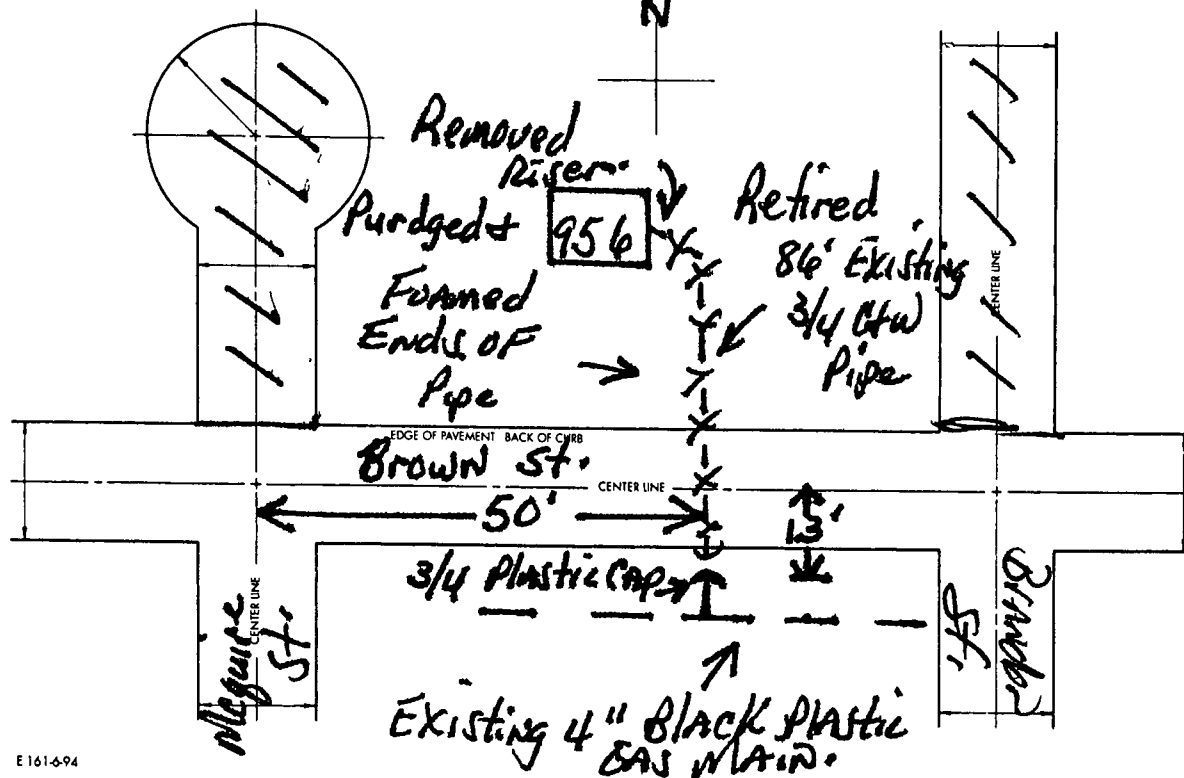 N
Removed
Riser
Purdged &
956
Foamed
Ends OF
Pipe
Retired
86' Existing
3/4 C+W
Pipe
CENTER LINE
EDGE OF PAVEMENT BACK OF CURB
Brown St.
CENTER LINE
50'
13'
3/4 Plastic Cap
CENTER LINE
Mcguire
St.
St.
Existing 4" BLACK PLASTIC
GAS MAIN.
E 161-6-94